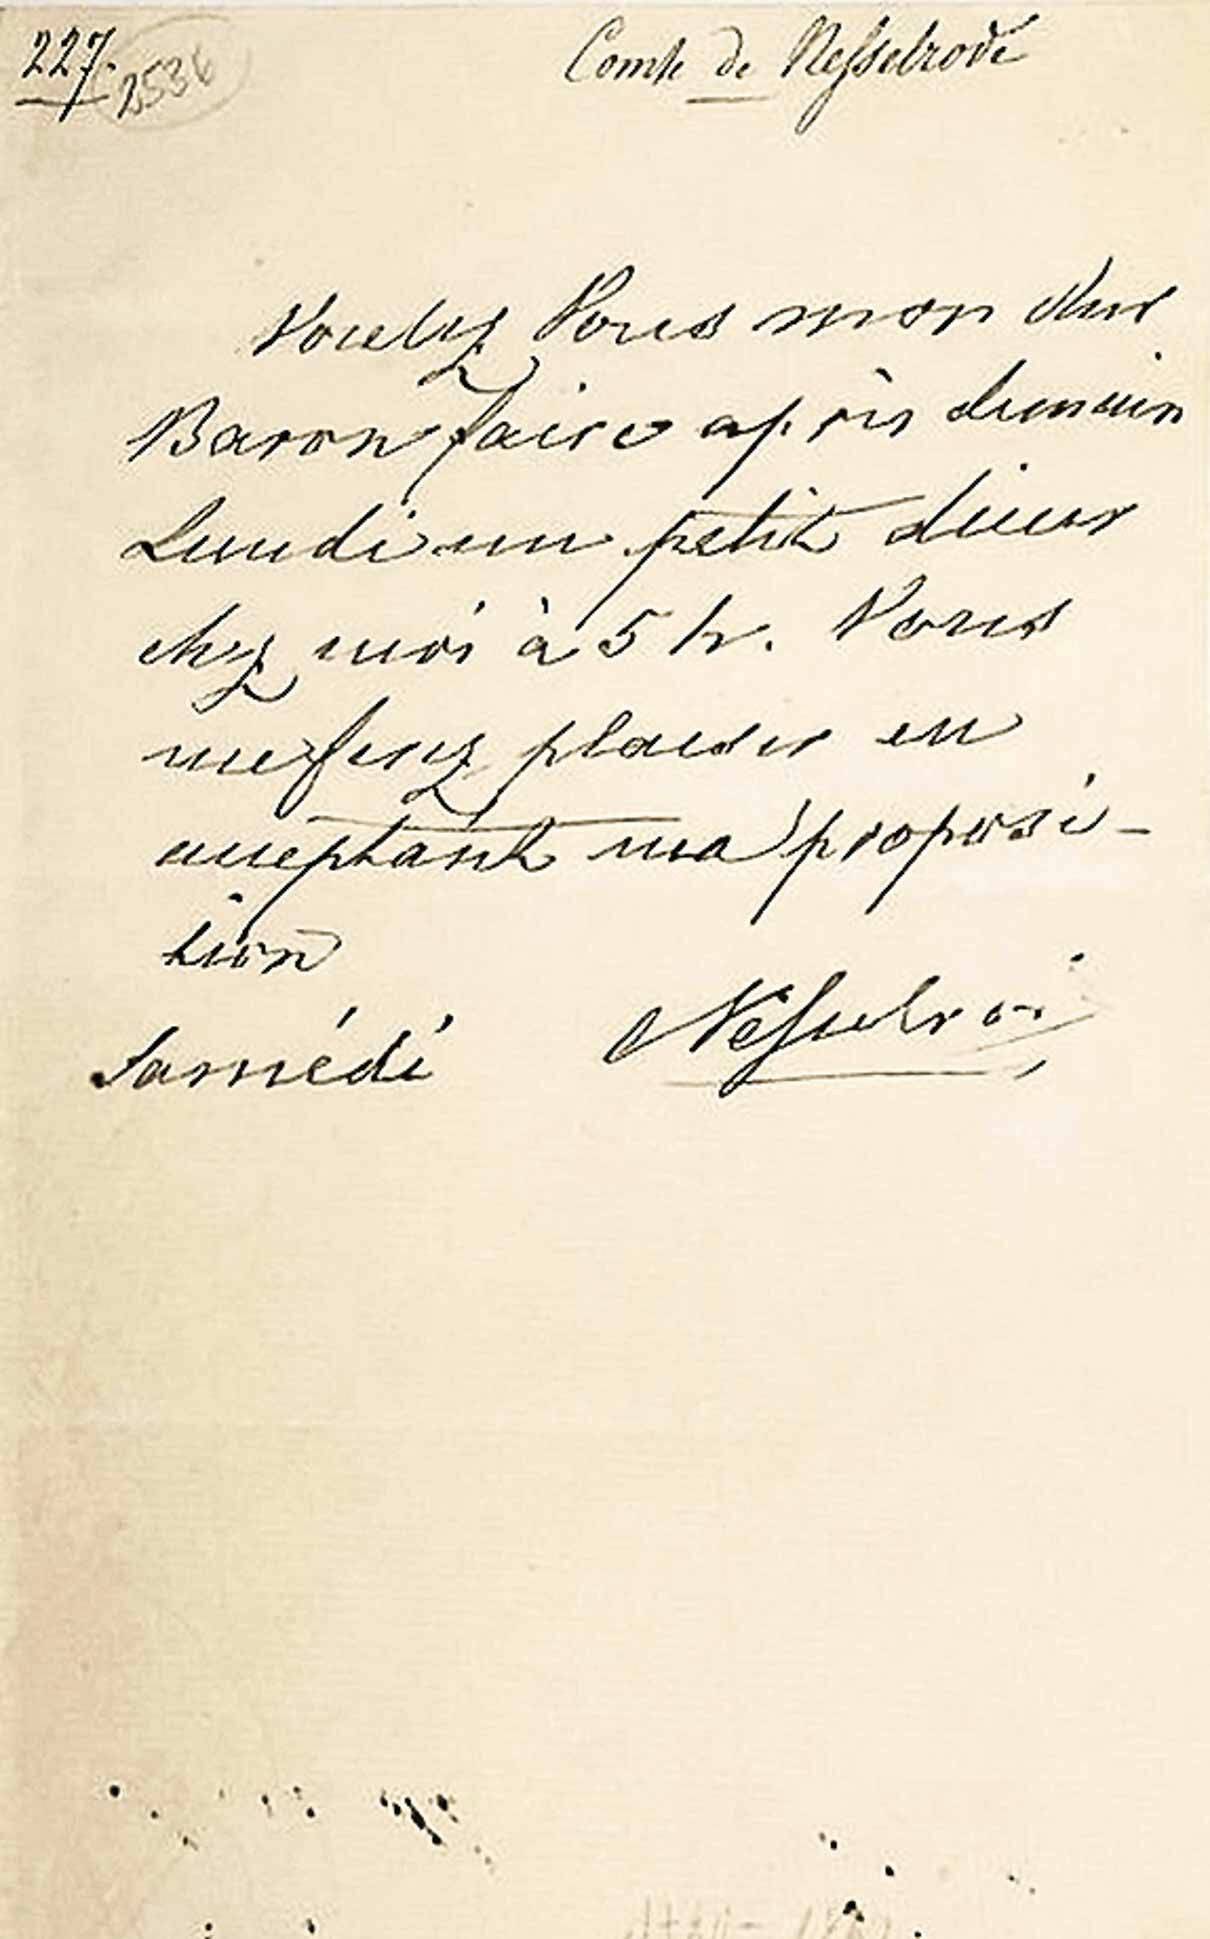 227.
2536
Comte de Nesselrode
Voulez Vous mon cher
Baron faire après demain
Lundi un petit diner
chez moi à 5 h. Vous
me ferez plaisir en
acceptant ma proposi-
tion
Samédi Nesselrode